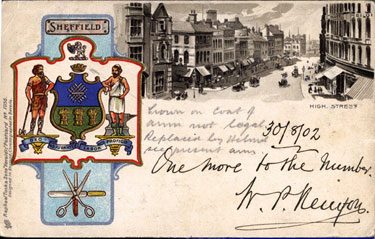 SHEFFIELD
HIGH. STREET
Crown on Coat of
arms not legal
Replaced by Helmet
arms
30/8/02
One more to the Number.
W. P. Kenyon
DEO
LABOR
PROFICIT
Raphael Tuck & Sons "Heraldic" Postcard No.